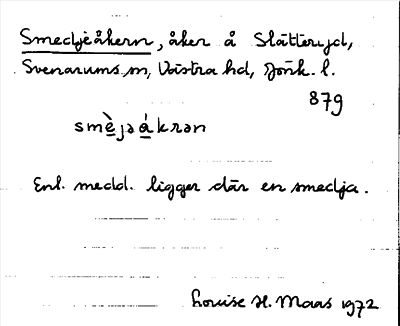 Smedjeåkern, åker å Slätteryd,
Svenarums sn, Västra hd, Jönk. l.
879
smè̱jəá̱krən
Enl. medd. ligger där en smedja.
Louise H. Maas 1972